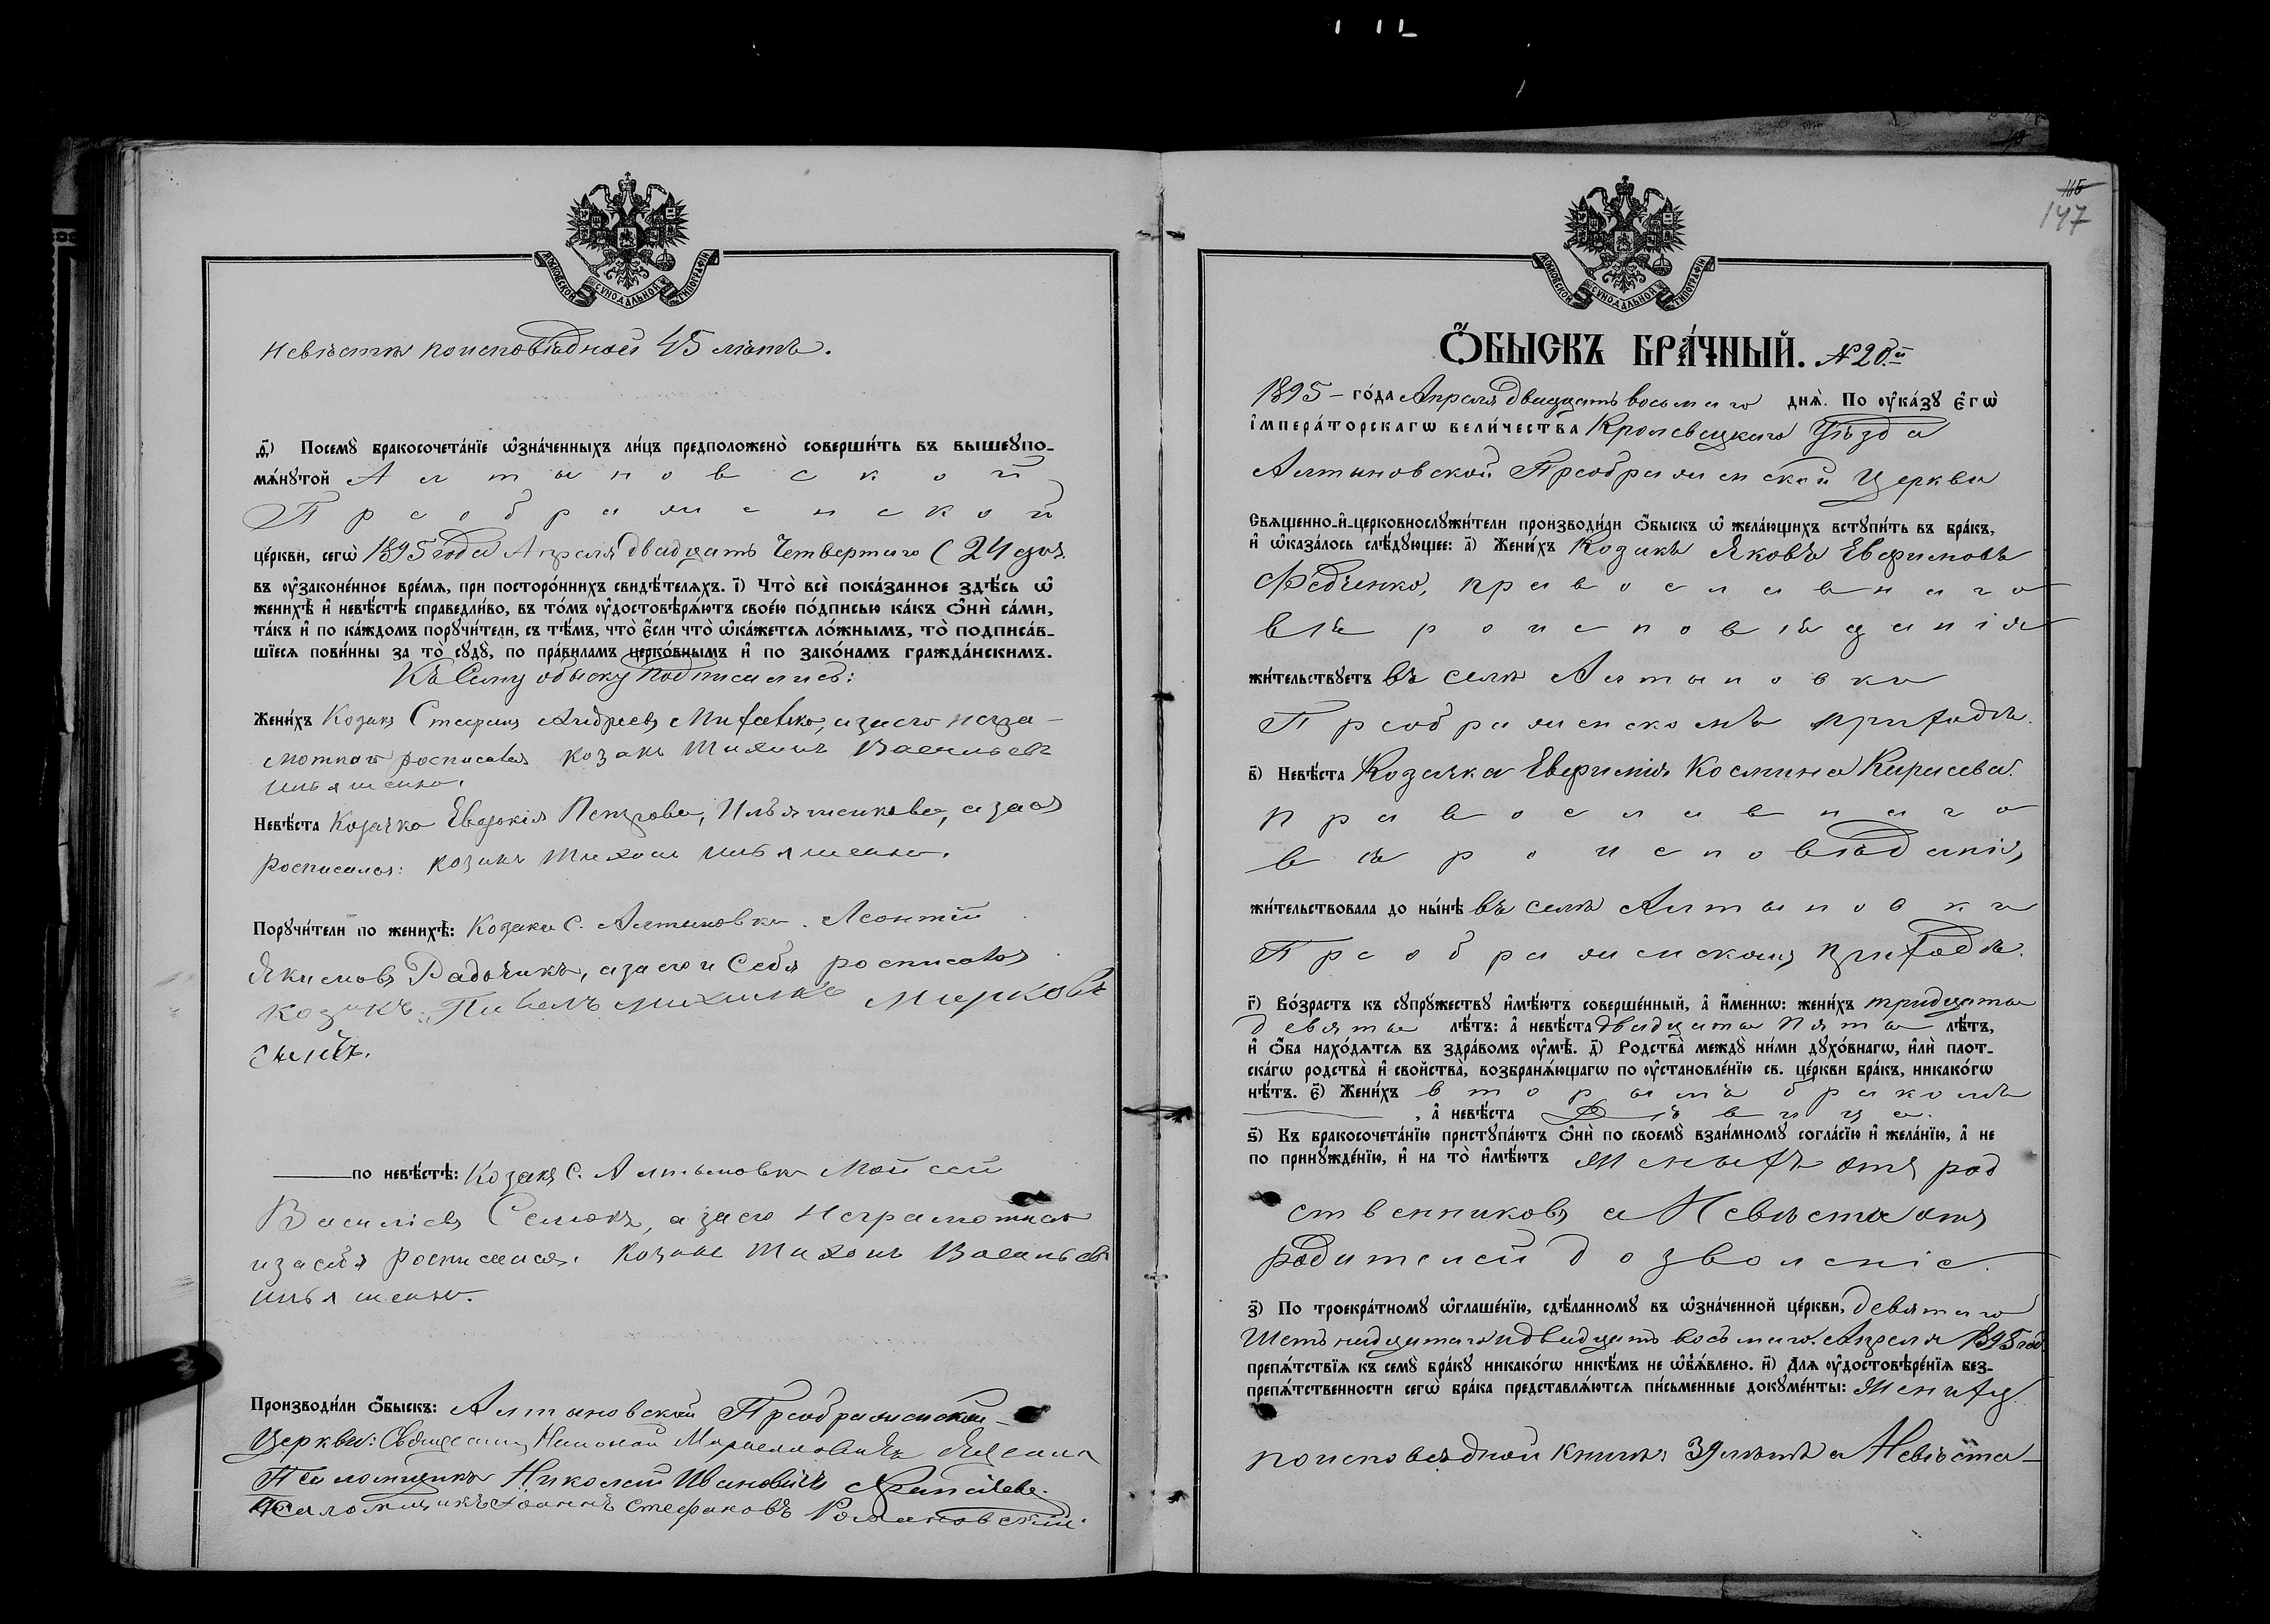 МОСКОВСКОЙ СѴНОДАЛЬНОЙ ТИПОГРАФІИ
невѣста поисповѣдной 45 лѣтъ.
д҃) Посемꙋ̀ бракосочета́нїе ѡ҆зна́ченныхъ ли́цъ предположено̀ соверши́ть въ вышеꙋпо-
мѧ́нꙋтой Алтыновской
Преображенской
це́ркви, сегѡ̀ 1895 года Апрѣля двадцать Четвертаго (24 дня
въ ᲂу҆зако́не́нное вре́мѧ, при посторо́ннихъ свидѣ́телѧхъ. і҃) Что̀ всѐ показа́нное здѣ́сь ѡ҆
женихѣ̀ и҆ невѣ́стѣ справедли́во, въ то́мъ ᲂу҆достовѣрѧ́ютъ свое́ю по́дписью ка́къ ѻ҆нѝ са́ми,
та́къ и҆ по ка́ждомъ порꙋчи́тели, съ тѣ́мъ, что̀ є҆́сли что̀ ѡ҆ка́жетсѧ ло́жнымъ, то̀ подписа́в-
шїесѧ пови́нны за то̀ сꙋдꙋ̀, по пра́виламъ церко́внымъ и҆ по зако́намъ гражда́нскимъ.
Къ Сему обыску подписались:
Жени́хъ Козакъ Стефанъ Андреевъ а за его негра-
мотнаго росписался козакъ Тихонъ Васильевъ
Ильяшенко.
Невѣ́ста Козачка Евдокія Петрова, Ильяшенкова, а за ея
росписался: козакъ Тихонъ Ильяшенко.
Порꙋчи́тели по женихѣ̀: Козакъ С. Алтыновки Леонтій
Якимовъ Радьчикъ, а за его и Себя росписался
козакъ Павелъ
по невѣ́стѣ: Козакъ С. Алтыновки Мойсей
Василіевъ Семокъ, а за его неграмотнаго
и за себя росписался. Козакъ Тихонъ Васильевъ
Ильяшенко.
Производи́ли ѻ҆́быскъ: Алтыновской Преображенской
Церкви: Священникъ
Псаломщикъ Николай Ивановичъ
Псаломщикъ Іоаннъ Стефановъ Романовскій
МОСКОВСКОЙ СѴНОДАЛЬНОЙ ТИПОГРАФІИ
147
Ѻ҆́БЫСКЪ БРА́ЧНЫЙ. №
1895 – го́да Апрѣля двадцать восьмаго днѧ̀. По ᲂу҆ка́зꙋ є҆гѡ̀
і҆мпера́торскагѡ вели́чества Кролевецкаго Уѣзда
Алтыновской Преображенской Церкви
Свѧщенно-и҆-церковнослꙋжи́тели производи́ли ѻ҆́быскъ ѡ҆ жела́ющихъ встꙋпи́ть въ бра́къ,
и҆ ѡ҆каза́лось слѣ́дꙋющее: а҃) Жени́хъ Козакъ Яковъ Евфимовъ
Федченко, православнаго
вѣроисповѣданія
жи́тельствꙋетъ въ селѣ Алтыновки
Преображенскомъ приходѣ.
в҃) Невѣ́ста Козачка Евфимія Космина Кирѣева.
православнаго
вѣроисповѣданія,
жи́тельствовала до ны́нѣ въ селѣ Алтыновки
Преображенскомъ приходѣ.
г҃) Во́зрастъ къ сꙋпрꙋ́жествꙋ и҆мѣ́ютъ соверше́нный, а҆ и҆́меннѡ: жени́хъ тридцать
девять лѣ́тъ: а҆ невѣ́ста двадцать пять лѣ́тъ,
и҆ ѻ҆́ба нахо́дѧтсѧ въ здра́вомъ ᲂу҆мѣ̀. д҃) Родства̀ междꙋ̀ ни́ми дꙋхо́внагѡ, и҆лѝ плот-
ска́гѡ родства̀ и҆ свойства̀, возбранѧ́ющагѡ по ᲂу҆становле́нїю св. це́ркви бра́къ, никако́гѡ
нѣ́тъ. є҃) Жени́хъ вторымъ бракомъ
, а҆ невѣ́ста Дѣвица.
ѕ҃) Къ бракосочета́нїю пристꙋпа́ютъ ѻ҆нѝ по своемꙋ̀ взаи́мномꙋ согла́сїю и҆ жела́нїю, а҆ не
по принꙋжде́нїю, и҆ на то̀ и҆мѣ́ютъ Женихъ отъ род
ственниковъ а Невѣста отъ
родителей дозволеніе.
з҃) По троекра́тномꙋ ѡ҆глаше́нїю, сдѣ́ланномꙋ въ ѡ҆зна́ченной це́ркви, девятаго
Шестнадцатаго и двадцать восьмаго Апрѣля 1895 год
препѧ́тствїѧ къ семꙋ̀ бра́кꙋ никако́гѡ никѣ́мъ не ѡ҆б̾ѧ́влено. и҃) Длѧ ᲂу҆достовѣре́нїѧ без-
препѧ́тственности сегѡ̀ бра́ка представлѧ́ютсѧ пи́сьменные докꙋме́нты: Жениху
поисповѣдной книгѣ 39 лѣтъ а Невѣста